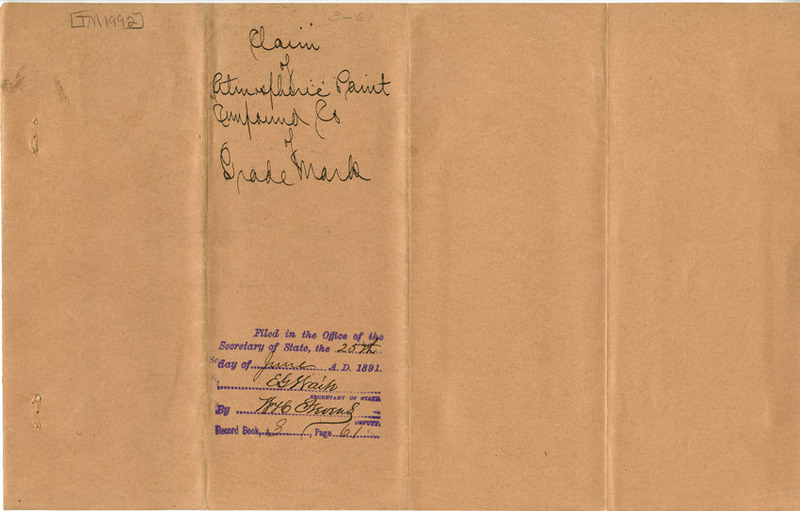 [TM1992]
3-61
Claim
of
Atmospheric Paint
Compound Co
of
Trade Mark
Filed in the Office of the
Secretary of State, the 25th
day of June A. D. 1891.
E G Waite
SECRETARY OF STATE.
By W H C Stevens
DEPUTY.
Record Book, 3, Page 61